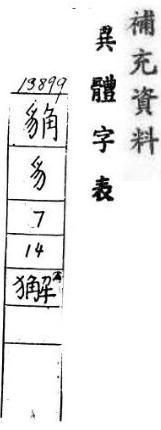 補充資料
異體字表
13899
豸
7
14
獬